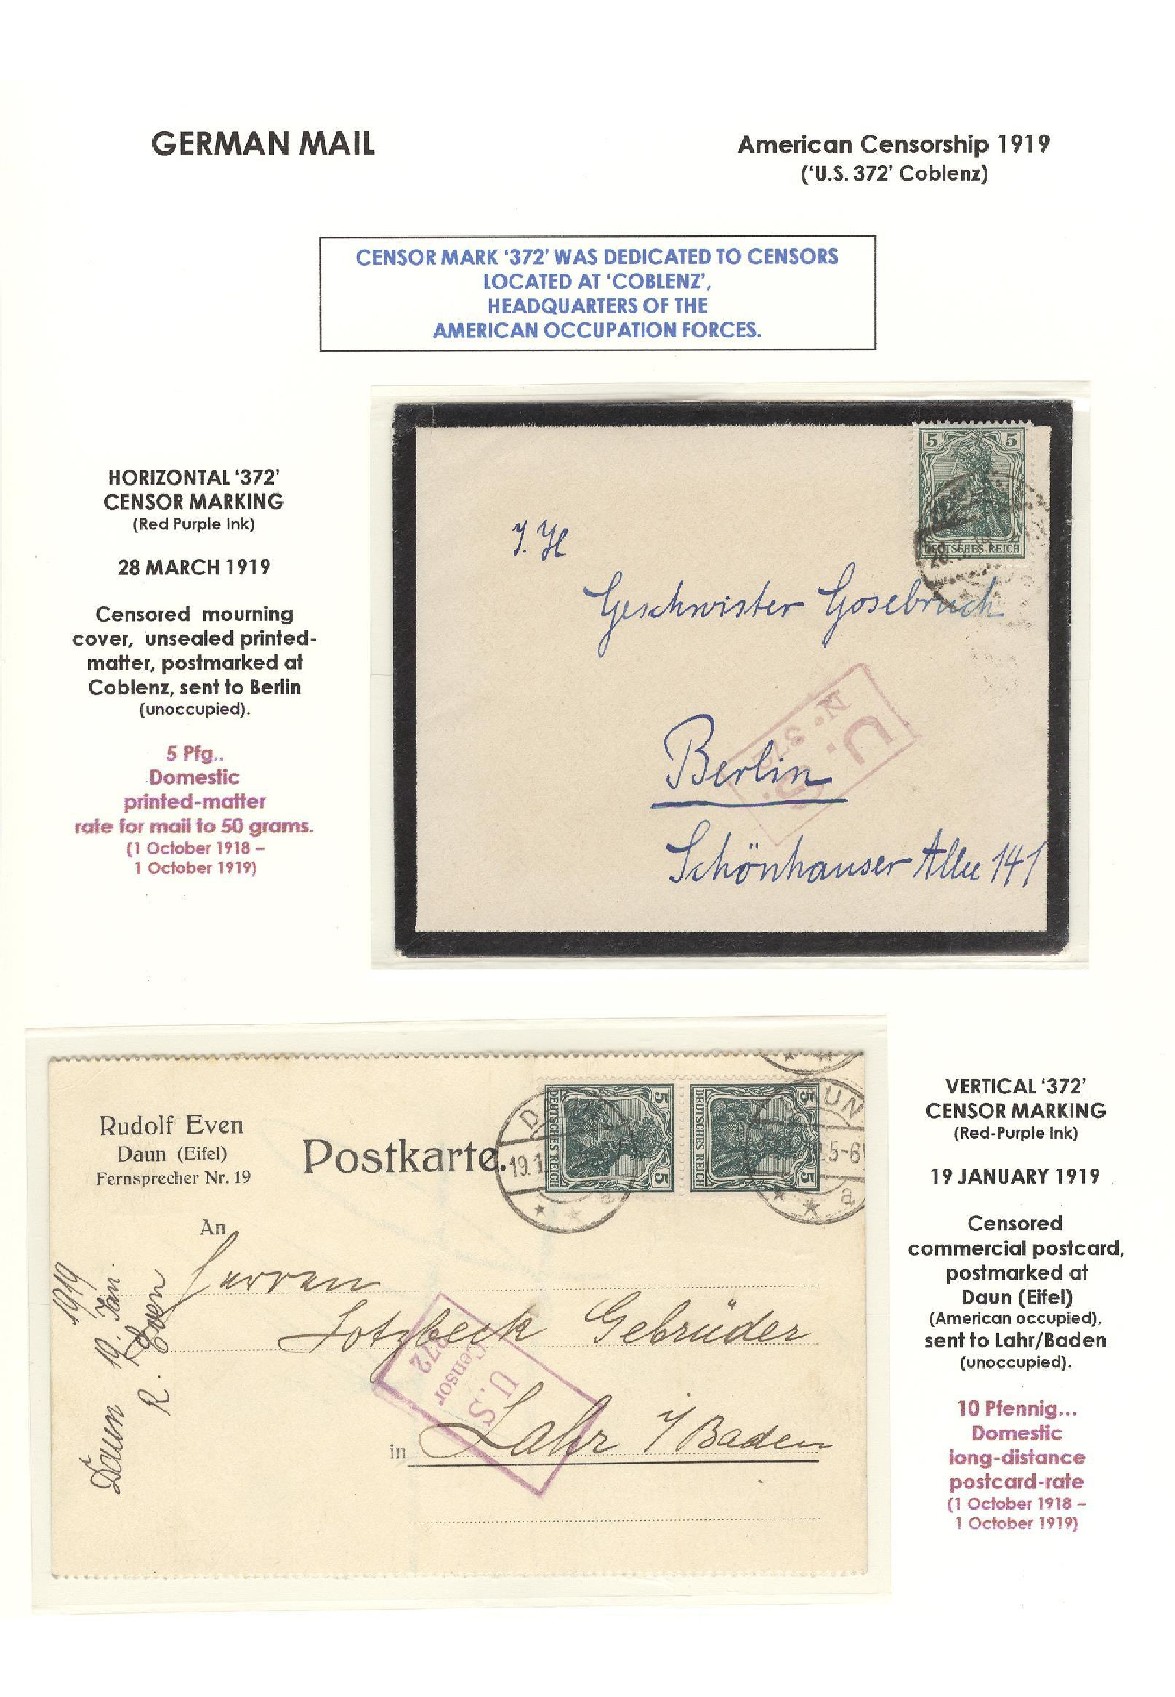 GERMAN MAIL
American Censorship 1919
('U.S. 372' Coblenz)
CENSOR MARK '372' WAS DEDICATED TO CENSORS
LOCATED AT 'COBLENZ',
HEADQUARTERS OF THE
AMERICAN OCCUPATION FORCES.
HORIZONTAL '372'
CENSOR MARKING
(Red Purple Ink)
28 MARCH 1919
Censored mourning
cover, unsealed printed-
matter, postmarked at
Coblenz, sent to Berlin
(unoccupied).
5 Pfg..
Domestic
printed-matter
rate for mail to 50 grams.
(1 October 1918 –
1 October 1919)
5 5
DEUTSCHES REICH
J. H
Geschwister Gosebruch
U. S.
No. 372
Berlin
Schönhauser Allee 141
Rudolf Even
Daun (Eifel)
Fernsprecher Nr. 19
Postkarte.
5 5
DEUTSCHES REICH
5 5
DEUTSCHES REICH
An
Herren
Lotzbeck Gebrüder
in Lahr i/Baden
U.S
Censor
372
Daun 19. Jan. 1919
R. Even
VERTICAL '372'
CENSOR MARKING
(Red-Purple Ink)
19 JANUARY 1919
Censored
commercial postcard,
postmarked at
Daun (Eifel)
(American occupied),
sent to Lahr/Baden
(unoccupied).
10 Pfennig...
Domestic
long-distance
postcard-rate
(1 October 1918 –
1 October 1919)